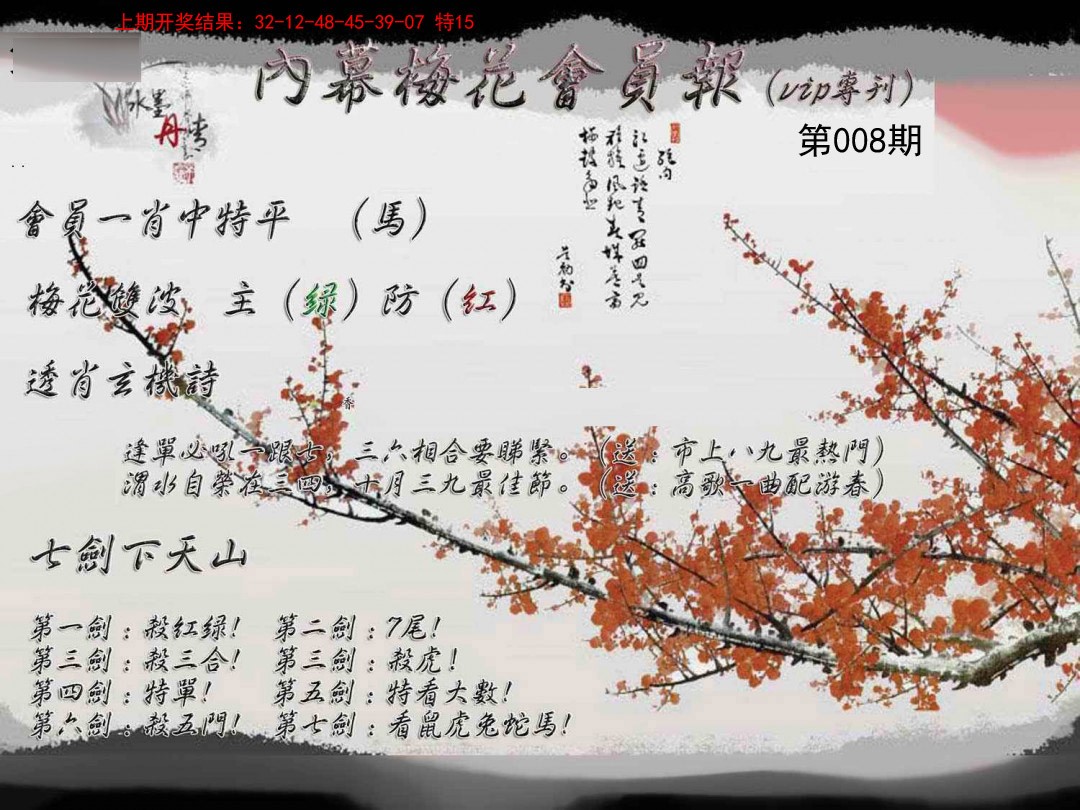 上期开奖结果：32-12-48-45-39-07 特15
內幕梅花會員報（vip專刊）
第008期
水墨
丹青
會員一肖中特平 （馬）
梅花雙波 主（绿）防（红）
透肖玄機詩
香
逢單必吼一跟七，三六相合要睇緊。（送：市上八九最熱門）
渭水自榮在三四，十月三九最佳節。（送：高歌一曲配游春）
七劍下天山
第一劍：殺紅绿！ 第二劍：7尾！
第三劍：殺三合！ 第三劍：殺虎！
第四劍：特單！ 第五劍：特看大數！
第六劍：殺五門！ 第七劍：看鼠虎兔蛇馬！